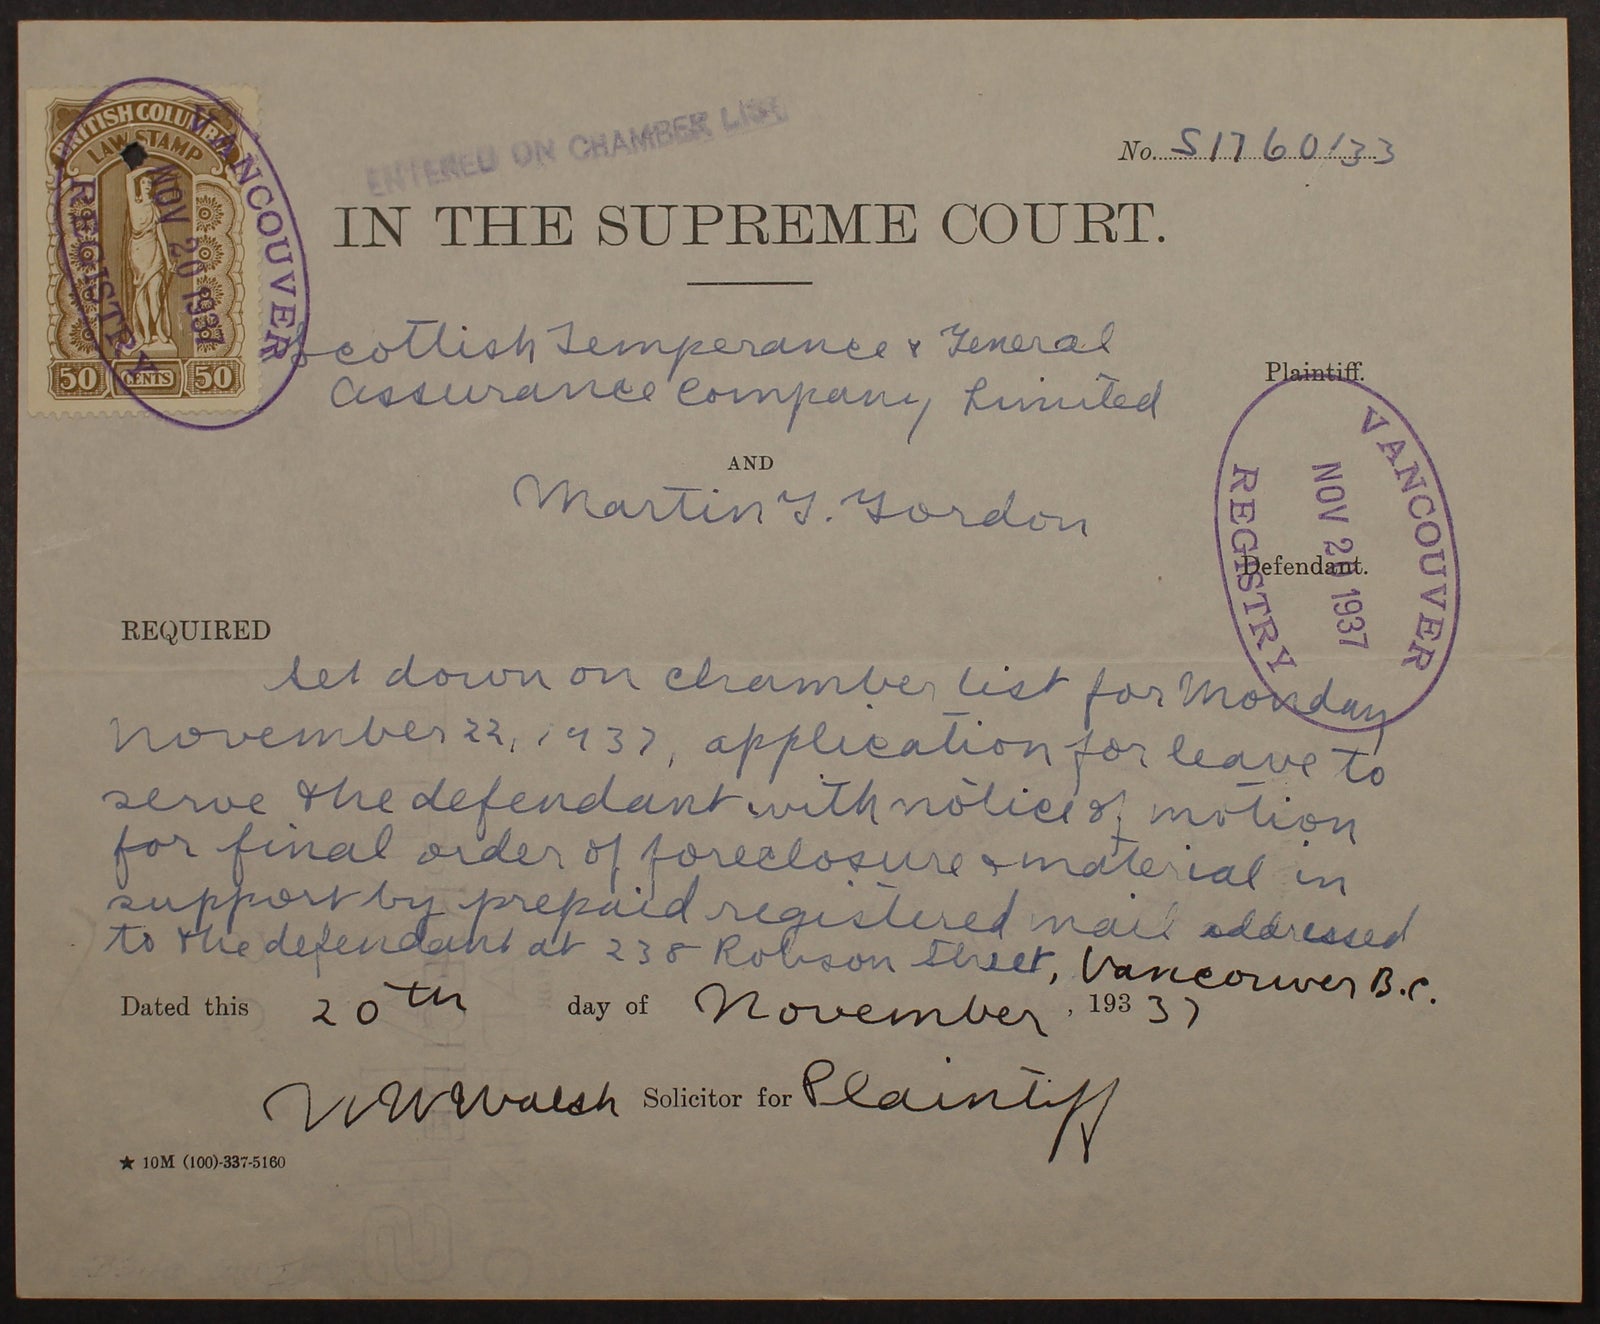 BRITISH COLUMBIA
LAW STAMP
50 CENTS 50
VANCOUVER
NOV 20 1937
REGISTRY
ENTERED ON CHAMBER LIST
No. S1760/33
IN THE SUPREME COURT.
Scottish Temperance & General
Assurance Company Limited
Plaintiff.
AND
Martin Gordon
Defendant.
VANCOUVER
NOV 20 1937
REGISTRY
REQUIRED
Set down on chamber list for Monday
November 22, 1937, application for leave to
serve the defendant with notice of motion
for final order of foreclosure & material in
support by prepaid registered mail addressed
to the defendant at 238 Robson Street, Vancouver B.C.
Dated this 20th day of November, 193 37
Walsh Solicitor for Plaintiff
★ 10M (100)-337-5160